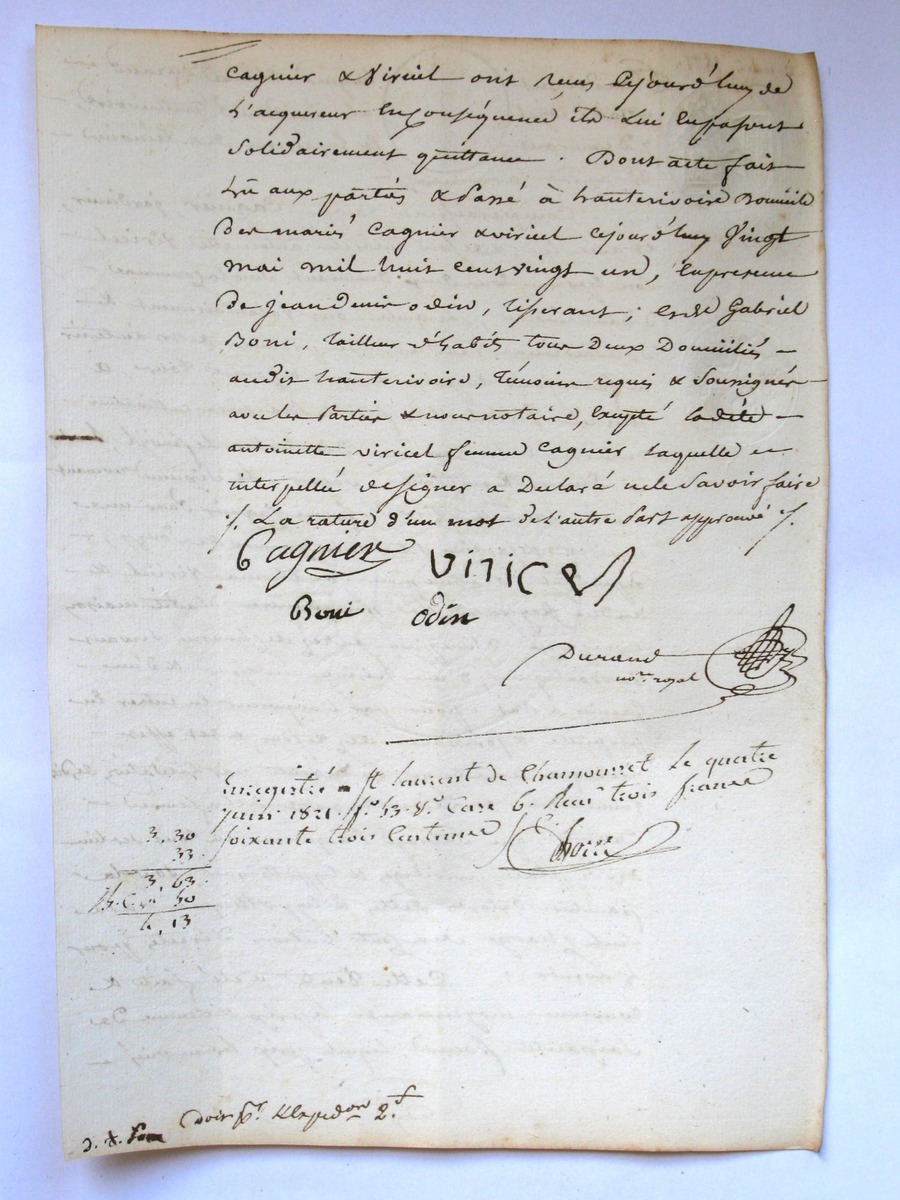 Cagnier & Viricel ont reçus cejourd'huy de
l'acquereur Enconséquence ils lui enpassent
solidairement quittance. Dont acte fait
Lû aux parties & Passé à hauterivoire Domicile
Des mariés Cagnier & viricel cejourd'huy Vingt
mai mil huit cent vingt un, Enpresence
De jean Denis odin, tisserant; et de Gabriel
Boni, tailleur d'habits tous Deux Domiciliés
audit hauterivoire, témoins requis & soussignés
avec les Parties & nous notaire, Excepté ladite
antoinette viricel femme Cagnier Laquelle
interpellée designer a Declaré ne le savoir faire
/. La rature d'un mot de l'autre Part approuvé /.
Cagnier viricel
Boni odin
Durand
no.re royal
Enregistré a St laurent de Chamousset le quatre
juin 1821. f.o 53. v.o Case 6. Recu trois francs
soixante trois Centimes
3, 30
33
3, 63
50
4, 13
Doit p.r Expedon 2.f